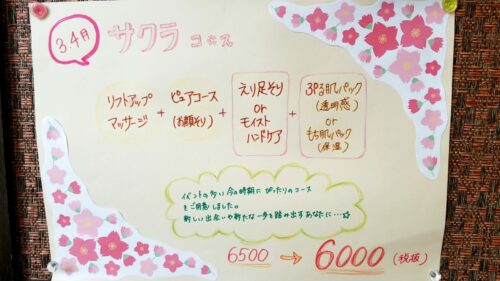 3.4月
サクラ コース
リフトアップ
マッサージ
+
ピュアコース
(お顔そり)
+
えり足そり
or
モイスト
ハンドケア
+
3Pる肌パック
(透明感)
or
もち肌パック
(保湿)
イベントの多い今の時期にぴったりのコース
をご用意しました。
新しい出会いや新たな一歩を踏み出すあなたに…☆
6500 → 6000 (税抜)